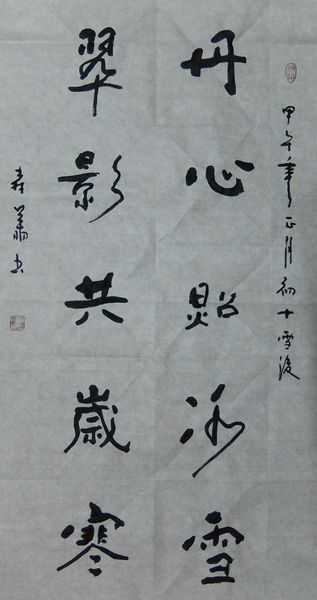 甲午年正月初十雪後
丹心照冰雪
翠影共歲寒
書